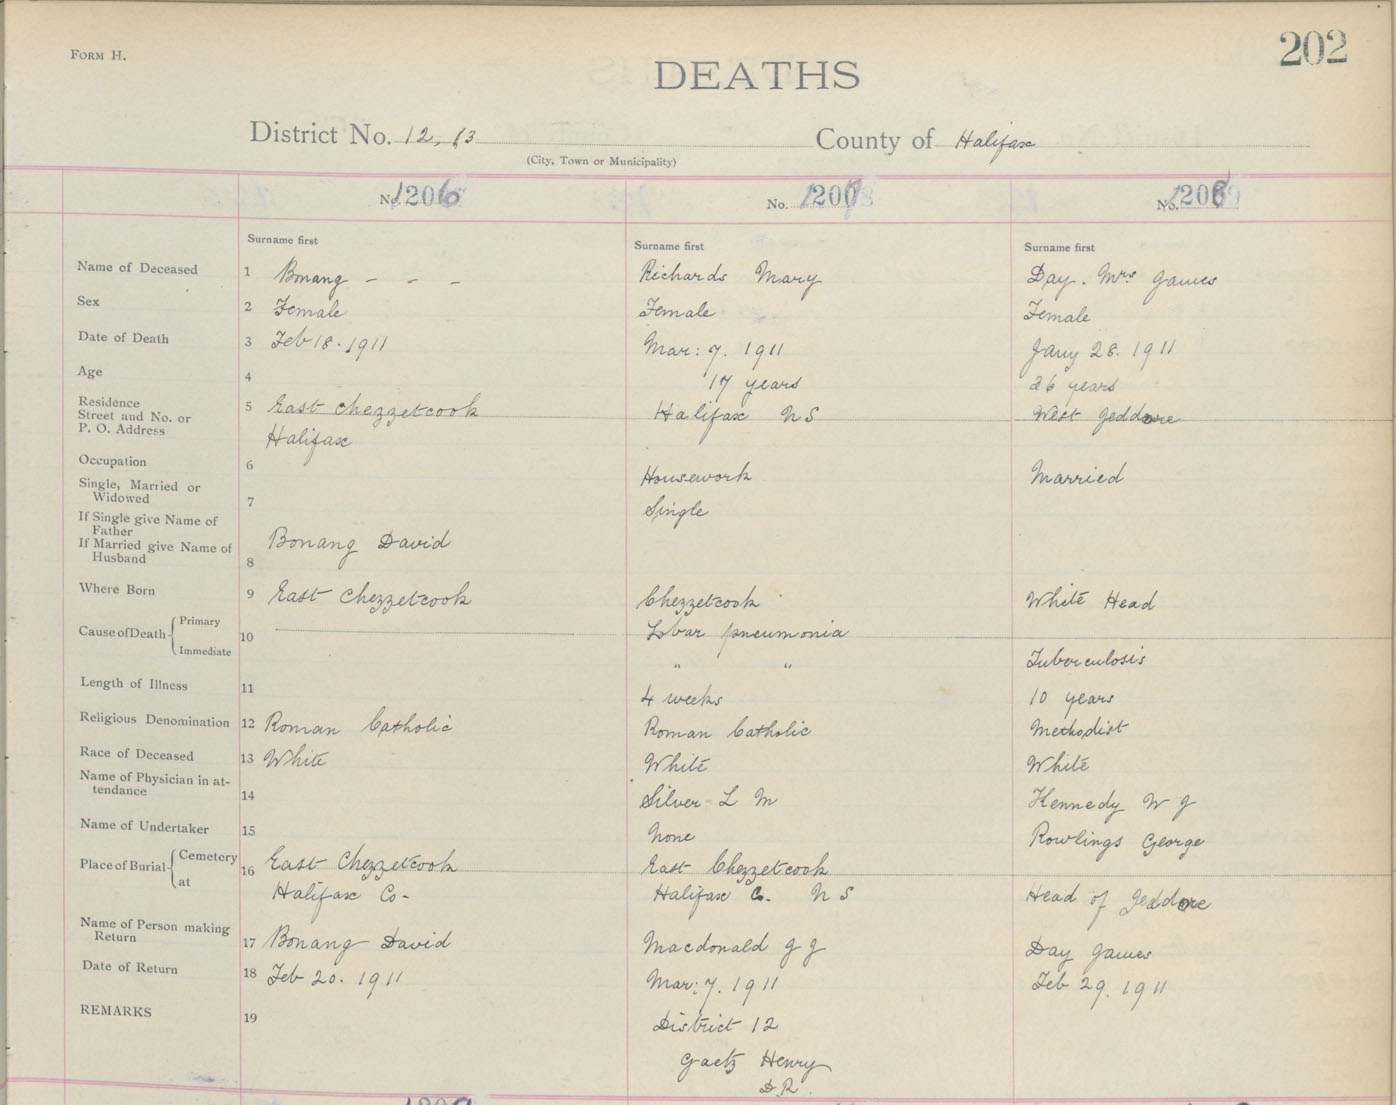 FORM H.
202
DEATHS
District No. 12, 13 County of Halifax
(City, Town or Municipality)
No. 1206 No. 1207 No. 1208
Surname first Surname first Surname first
Name of Deceased 1 Bonang - - - Richards Mary Day. Mrs James
Sex 2 Female Female Female
Date of Death 3 Feb 18. 1911 Mar: 7. 1911 Jany 28. 1911
Age 4 17 years 26 years
Residence
Street and No. or 5 East Chezzetcook Halifax N S West Jeddore
P. O. Address Halifax
Occupation 6 Housework Married
Single, Married or
Widowed 7 Single
If Single give Name of
Father
If Married give Name of Bonang David
Husband 8
Where Born 9 East Chezzetcook Chezzetcook White Head
Cause of Death Primary 10 Lobar pneumonia
Immediate " " Tuberculosis
Length of Illness 11 4 weeks 10 years
Religious Denomination 12 Roman Catholic Roman Catholic Methodist
Race of Deceased 13 White White White
Name of Physician in at-
tendance 14 Silver L M Kennedy W J
Name of Undertaker 15 None Rowlings George
Place of Burial Cemetery 16 East Chezzetcook East Chezzetcook
at Halifax Co- Halifax Co. N S Head of Jeddore
Name of Person making
Return 17 Bonang David Macdonald J J Day James
Date of Return 18 Feb 20. 1911 Mar: 7. 1911 Feb 29. 1911
REMARKS 19 District 12
Gaetz Henry
D.R.